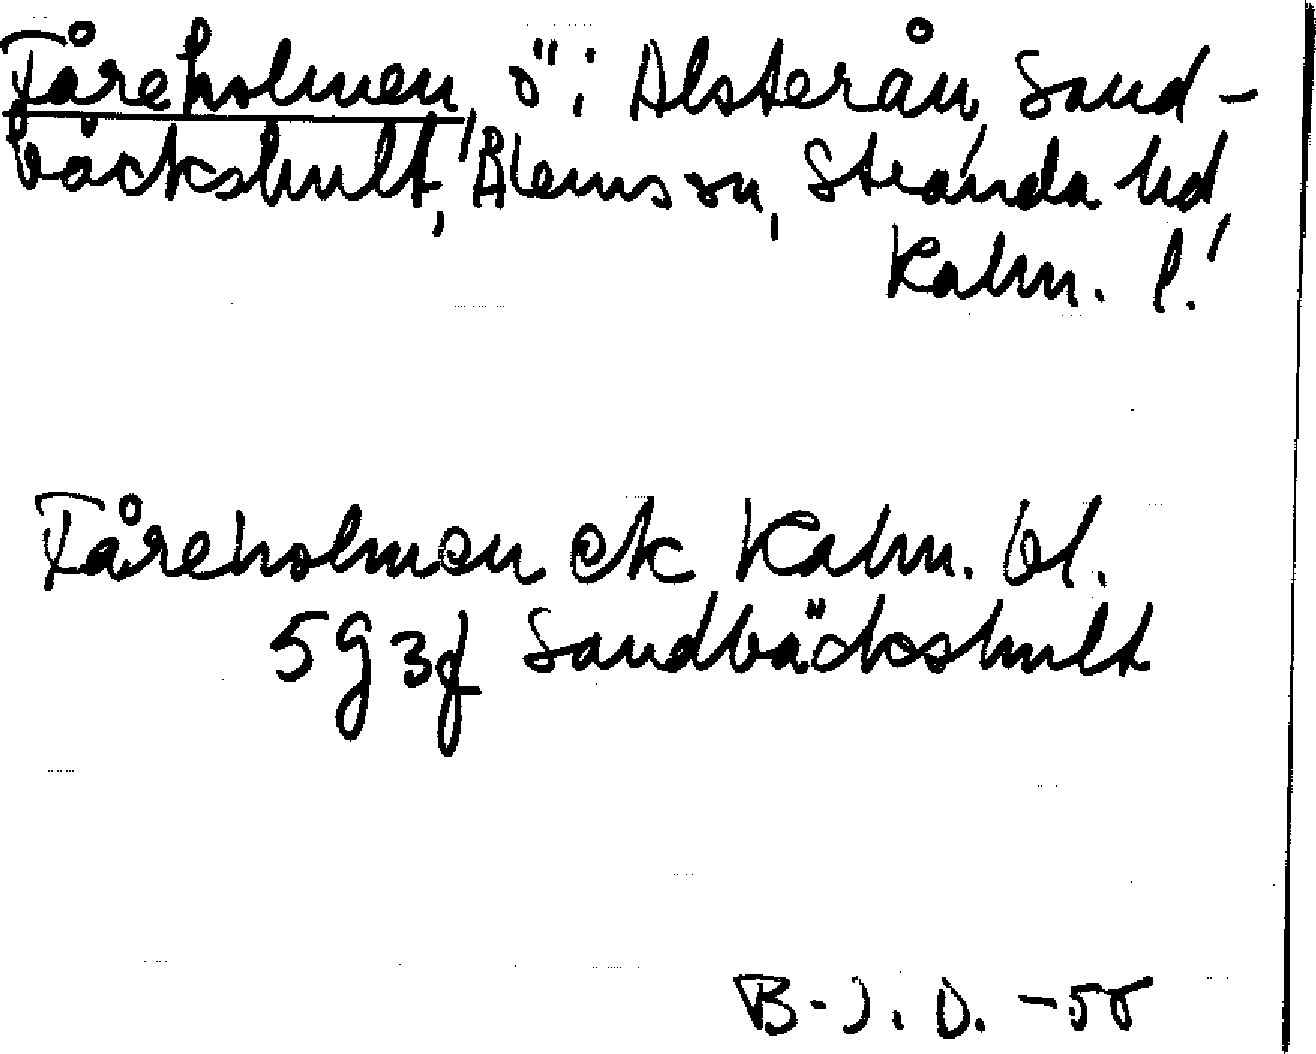 Fåreholmen, ö i Alsterån, Sand-
bäckshult, Ålems sn, Stranda hd,
Kalm. l.
Fåreholmen ek Kalm. bl.
5g 3f Sandbäckshult
B-J. D. -55